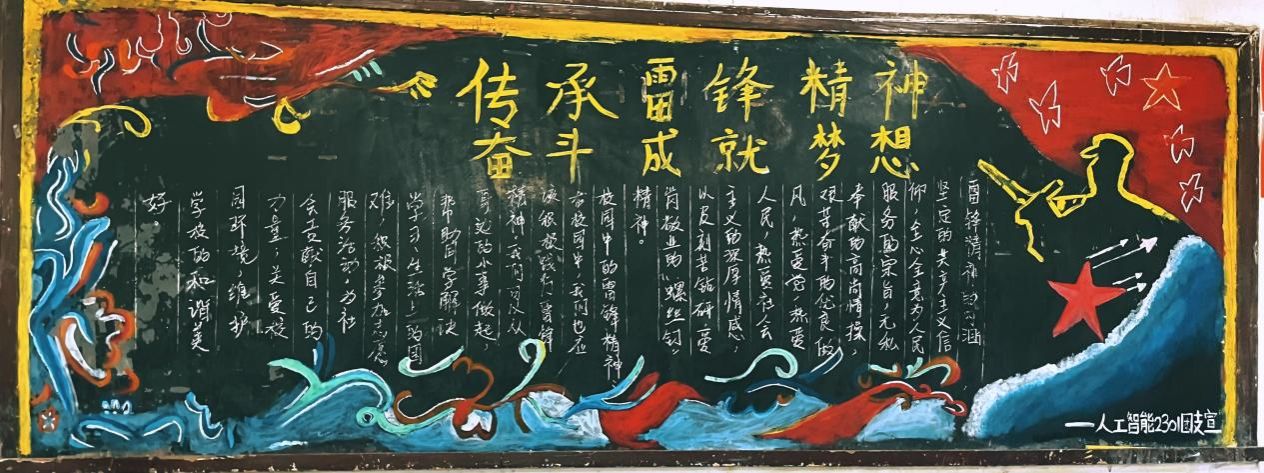 传承雷锋精神
奋斗成就梦想
雷锋精神的内涵
坚定的共产主义信
仰，全心全意为人民
服务的宗旨，无私
奉献的高尚情操，
艰苦奋斗的优良做
凡，热爱党、热爱
人民，热爱社会
主义的深厚情感，
以及刻苦钻研爱
岗敬业的“螺丝钉”
精神。
校园中的雷锋精神
在校园中，我们也应
该积极践行雷锋
精神，我们可以从
身边的小事做起，
帮助同学解决
学习、生活上的困
难，积极参加志愿
服务活动，为社
会贡献自己的
力量，关爱校
园环境，维护
学校的和谐美
好。
——人工智能2301团支宣